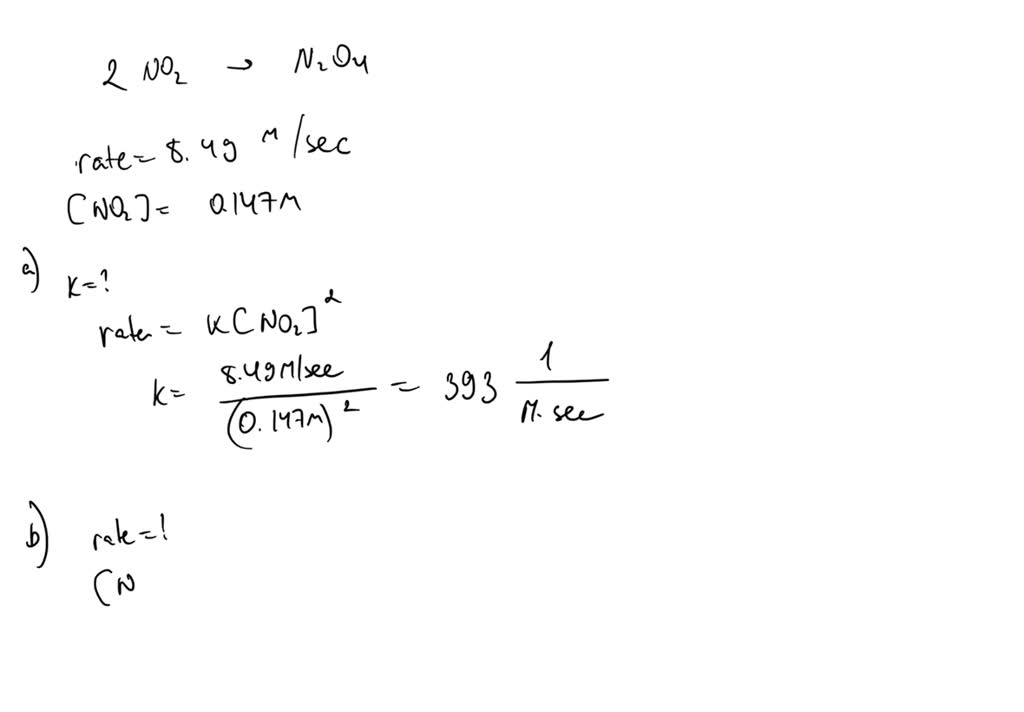 2 NO₂ → N₂O₄
rate = 8.49 M/sec
[NO₂] = 0.147M
a)
K=?
rate = K[NO₂]²
K = 8.49M/sec / (0.147M)² = 393 1 / M.sec
b) rate =!
(N